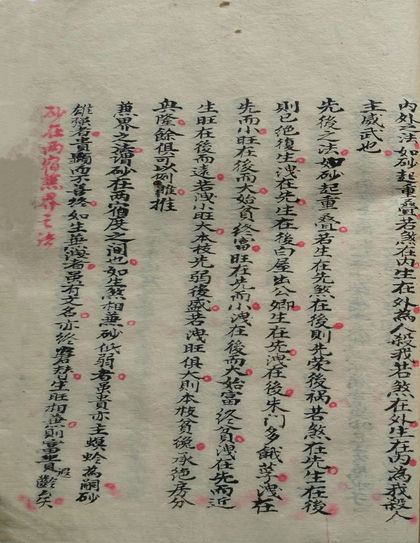 内外之法如砂起重叠若煞在内生在外為人殺我若煞在外生在内為我殺人
主威武也
先後之法如砂起重叠若生在先煞在後則先荣後祸若煞在先生在後
則已絶復生洩在先生在後白屋出公卿生在先洩在後朱门多餓莩洩在
先而小旺在後而大始貧終富旺在先而小洩在後而大始富终貧洩在先而近
生旺在後而遠若洩小旺大本枝先弱後盛若洩旺俱大則本枝貧絶承绝房分
興隆餘俱可例推
兼界之法謂砂在两宿度之间也如生煞相兼砂低弱者虽貴亦主螟蛉為嗣砂
雄强者貴顯而不善終如生兼洩者虽有文名亦终窮若生旺相兼則富貴遐齡矣
砂在两宿兼界之法